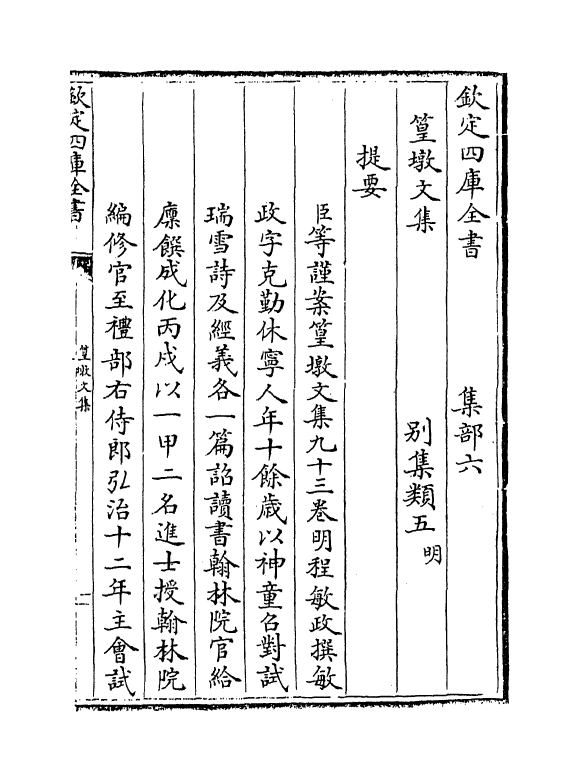 欽定四庫全書　　　　集部六
篁墩文集　　　　　　别集類五明
提要
臣等謹案篁墩文集九十三卷明程敏政撰敏
政字克勤休寧人年十餘歳以神童召對試
瑞雪詩及經義各一篇詔讀書翰林院官給
廪饌成化丙戌以一甲二名進士授翰林院
編修官至禮部右侍郎弘治十二年主會試
欽定四庫全書
篁墩文集